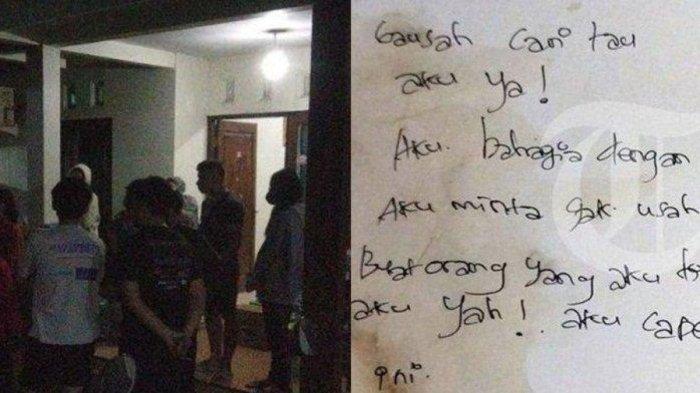 Gausah Cari tau
aku ya!
Aku bahagia dengan
Aku minta gak usah
Buat orang yang aku
aku yah! aku cape
ini.